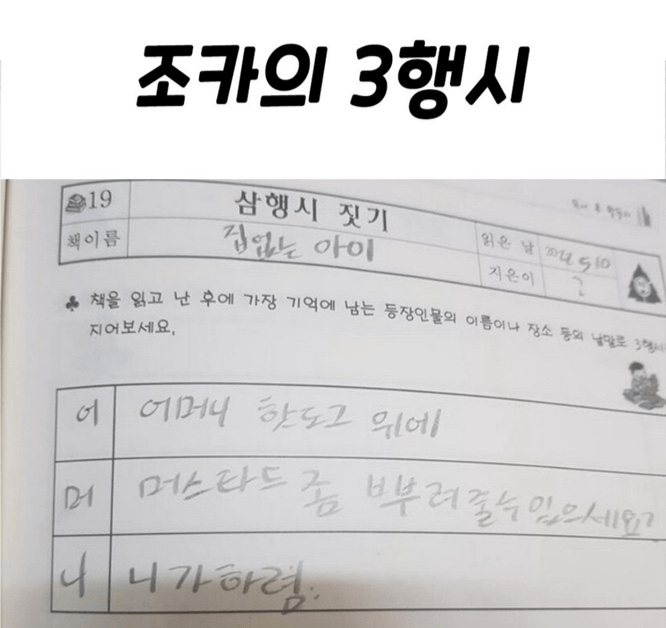 조카의 3행시
19
삼행시 짓기
책이름
집없는 아이
읽은 날
지은이
?
♣ 책을 읽고 난 후에 가장 기억에 남는 등장인물의 이름이나 장소 등의 낱말로 3행시
지어보세요.
어
어머니 핫도그 위에
머
머스타드 좀 뿌려줄수있으세요?
니
니가하렴.